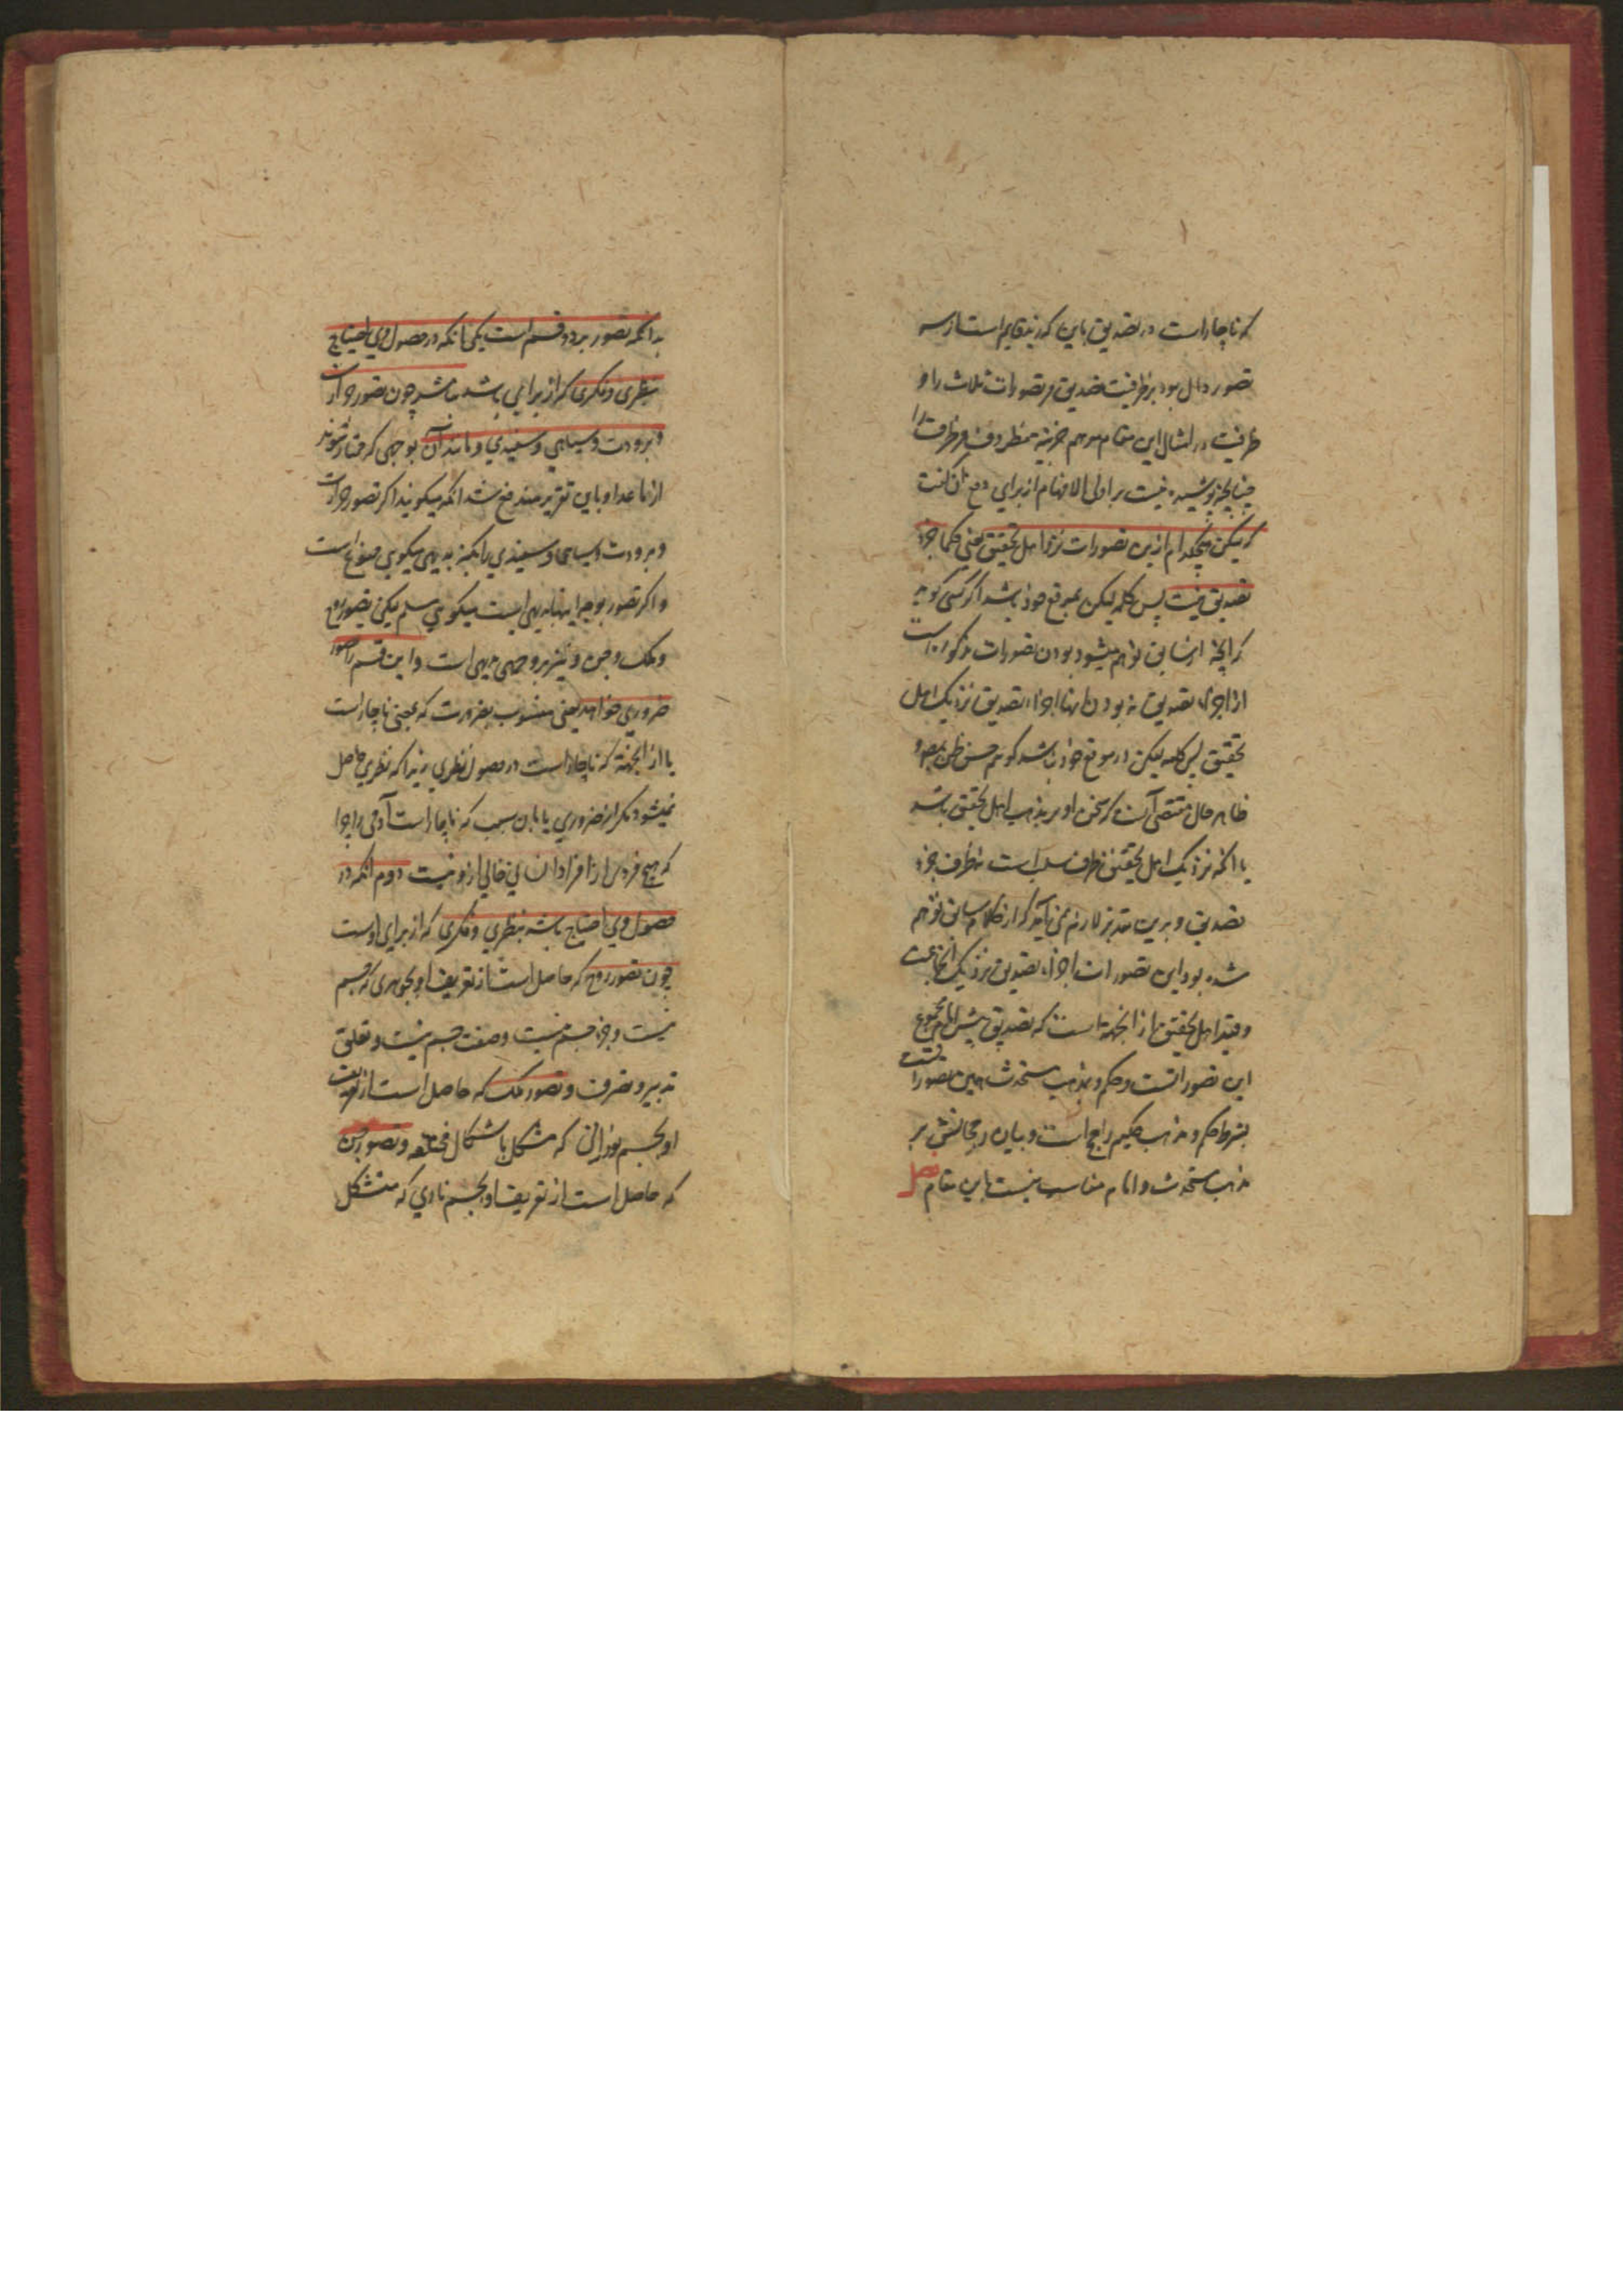 که ناچار است در تصدیق باین که زید قایم است از سه
تصور دال بود بر ظرفیت تصدیق مر تصورات ثلاث را و
ظرفیت در امثال این مقام موهم جزئیة مظروف مر ظرف را
چنانچه پوشیده نیست بر اولی الافهام از برای دفع آن گفت
که لیکن هیچکدام ازین تصورات نزد اهل تحقیق یعنی حکما جزء
تصدیق نیست پس کلمه لیکن بموقع خود باشد اگر کسی گوید
که آنچه از سابق توهم میشود بودن تصورات مذکوره است
از اجزاء تصدیق نه بودن اینها اجزاء تصدیق نزدیک اهل
تحقیق پس کلمه لیکن در موقع خود نباشد گویم حسن ظن بمصنف
ظاهر حال مقتضی آنست که سخن او بر مذهب اهل تحقیق باشد
یا آنکه نزدیک اهل تحقیق ظرف سلب است نه ظرف جزء
تصدیق و برین تقدیر لازم می آید که از کلام سابق توهم
شده بود این تصورات اجزاء تصدیق نزدیک جماعت
و قید اهل تحقیق از آنجهة است که تصدیق پیش امام مجموع
این تصوراتست و حکم و مذهب مستحدث همین تصوراتست
بشرط حکم و مذهب حکیم راجح است و بیان رجحانش بر
مذهب مستحدث و امام مناسب نیست باین مقام فصل
بدانکه تصور بر دو قسم است یکی آنکه در حصول وی احتیاج
بنظری و فکری که از برای باشد نباشد چون تصور حرارت
و برودت و سیاهی و سفیدی و مانند آن بوجهی که ممتاز شوند
از ما عدا و باین تقریر مندفع شد آنکه میگویند اگر تصور حرارت
و برودت و سیاهی و سفیدی بالکنه بدیهی میگویی ممنوع است
و اگر تصور بوجه اینها بدیهی است میگویی مسلم لیکن تصور روح
و ملک و جن و نیز بوجهی بدیهی است و این قسم را تصور
ضروری خوانند یعنی منسوب بضرورت که بمعنی ناچار است
یا از آنجهة که ناچار است در حصول نظری زیرا که نظری حاصل
نمیشود مگر از ضروری یا بان سبب که ناچار است آدمی را چرا
که هیچ فردی از افراد انسانی خالی ازو نیست دوم آنکه در
حصول وی احتیاج باشد بنظری و فکری که از برای اوست
چون تصور روح که حاصل است از تعریف او بجوهری که جسم
نیست و جزء جسم نیست و صفت جسم نیست و تعلق
تدبیر و تصرف و تصور ملک که حاصل است از تعریف
او بجسم نورانی که متشکل باشکال مختلفه و تصور جن
که حاصل است از تعریف او بجسم ناری که متشکل